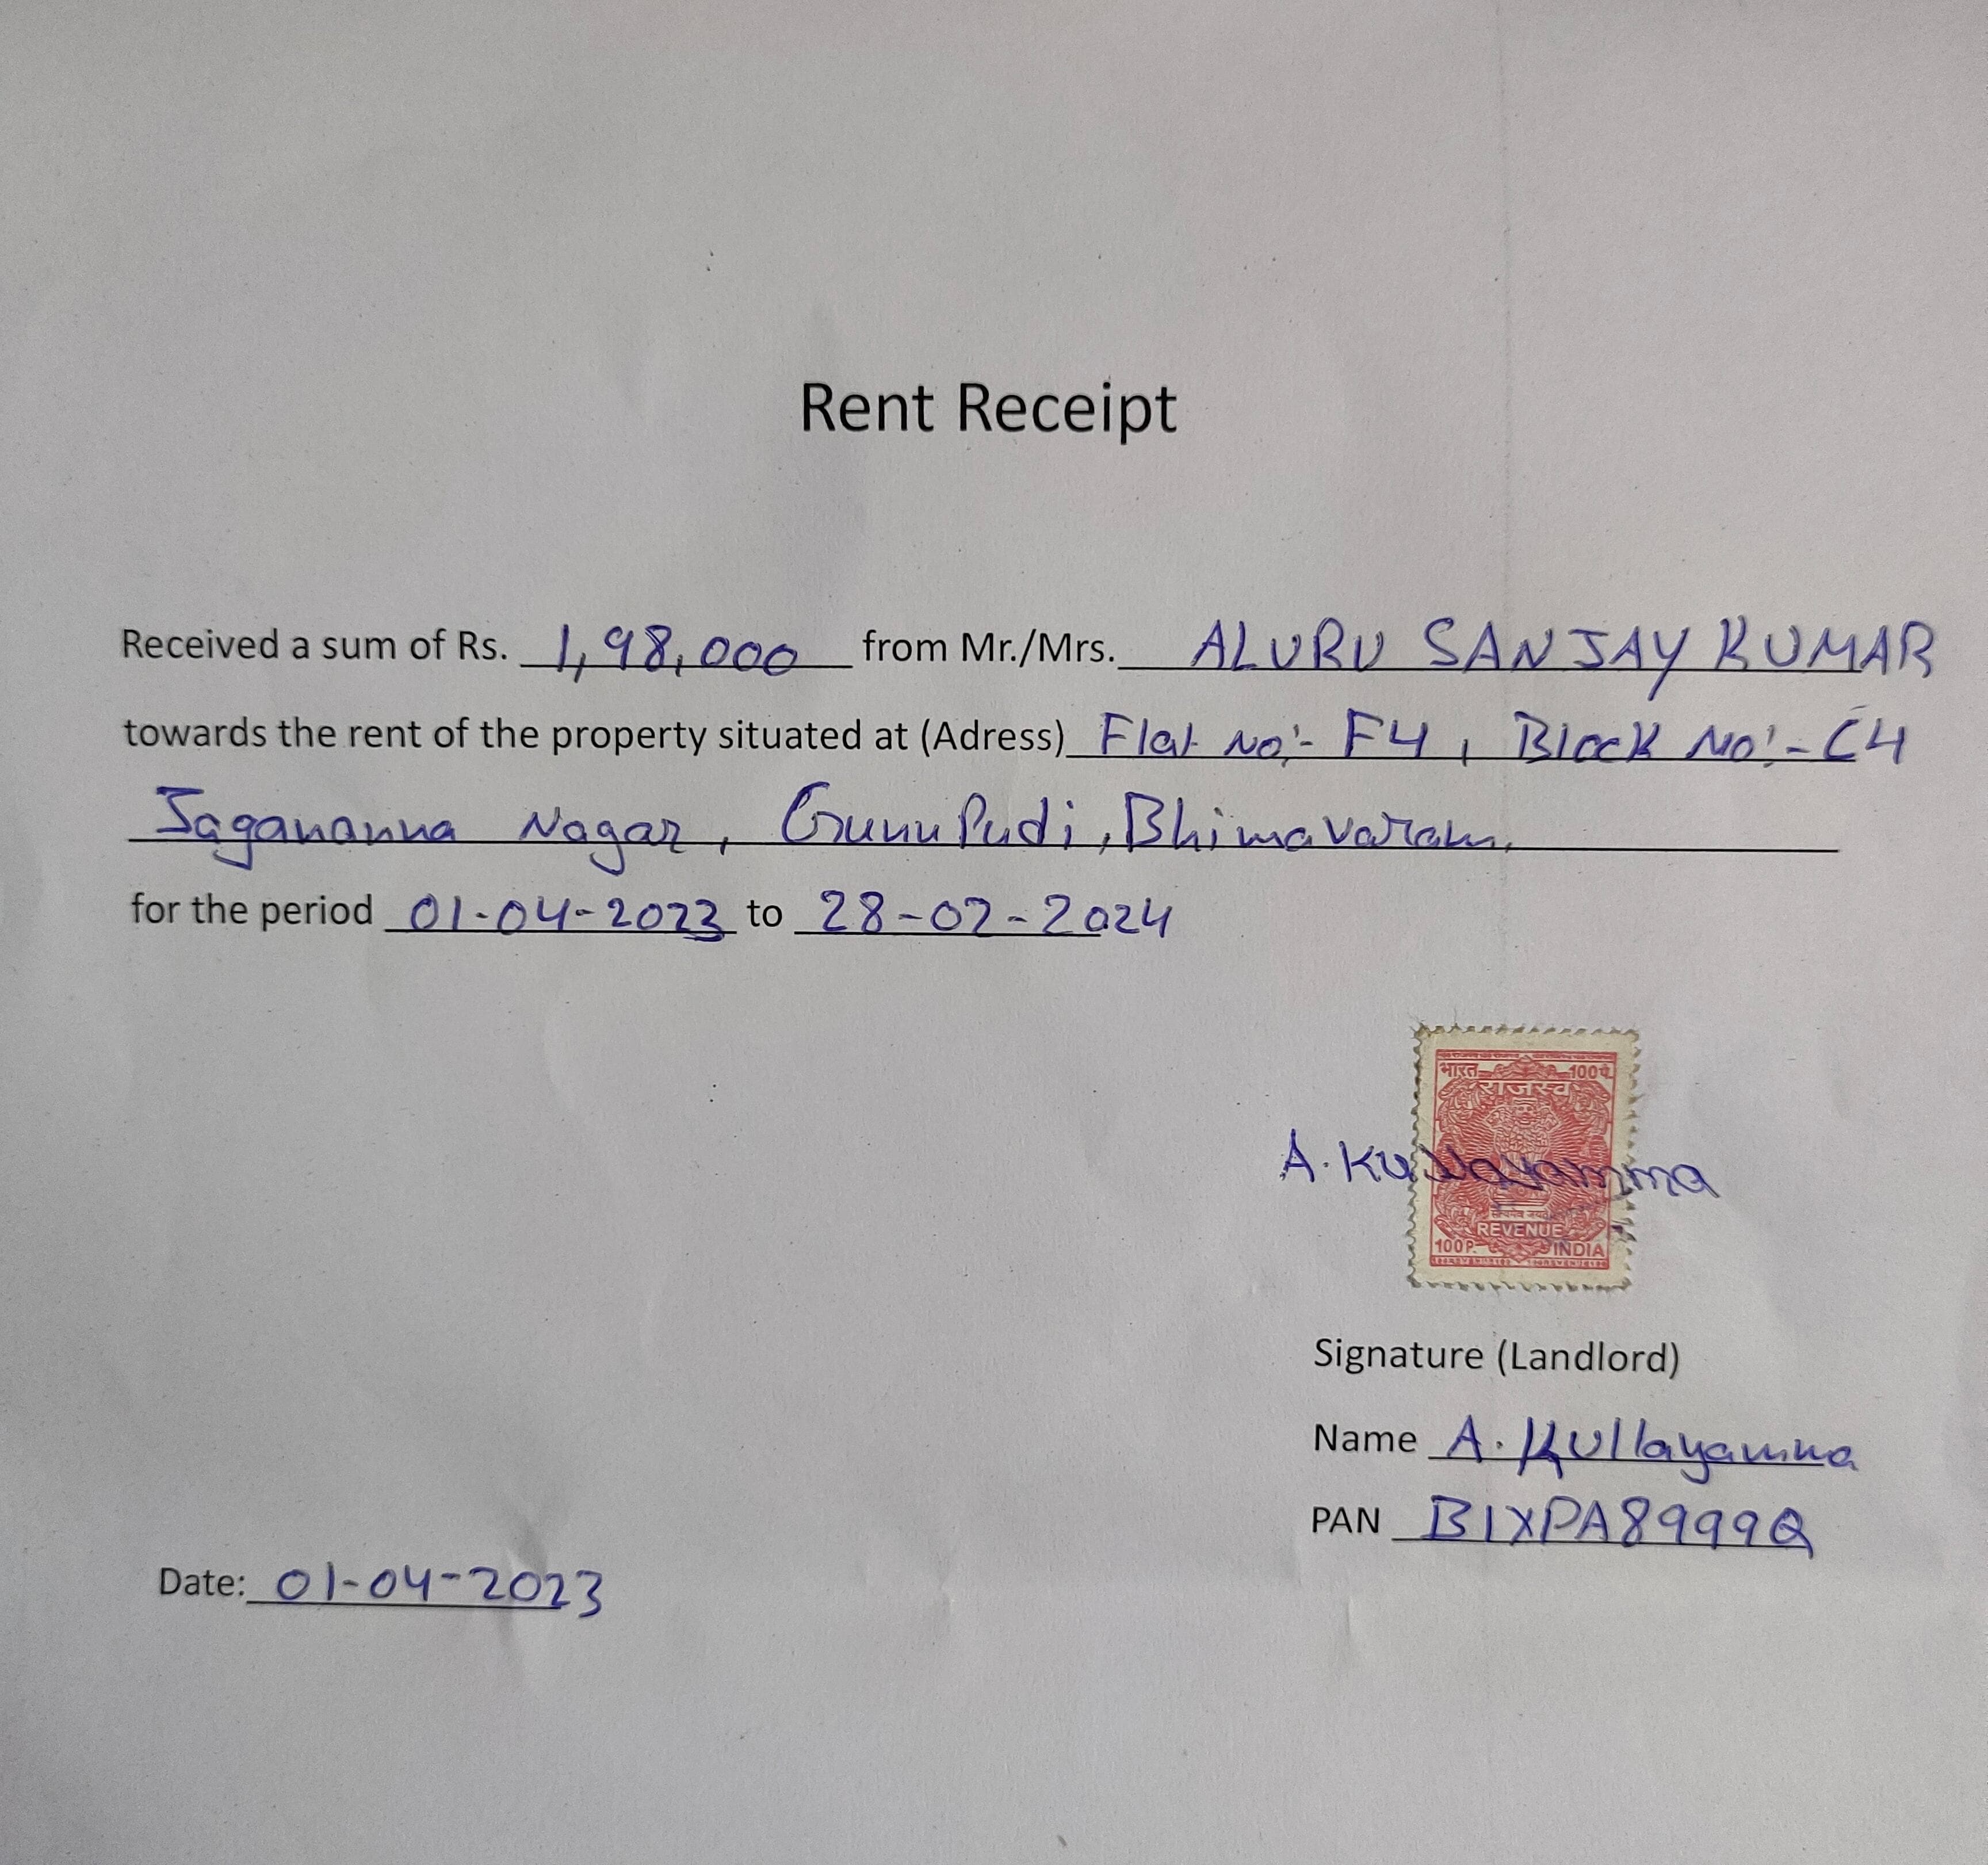 Rent Receipt
Received a sum of Rs. 1,98,000 from Mr./Mrs. ALURU SANJAY KUMAR
towards the rent of the property situated at (Adress) Flat No:- F4, Block No:- C4
Jagananna Nagar, GunuPudi, Bhimavaram,
for the period 01-04-2023 to 28-02-2024
भारत 100पै.
राजस्व
A. Kullayamma
REVENUE
100 P. INDIA
Signature (Landlord)
Name A. Kullayamma
PAN BIXPA8999Q
Date: 01-04-2023